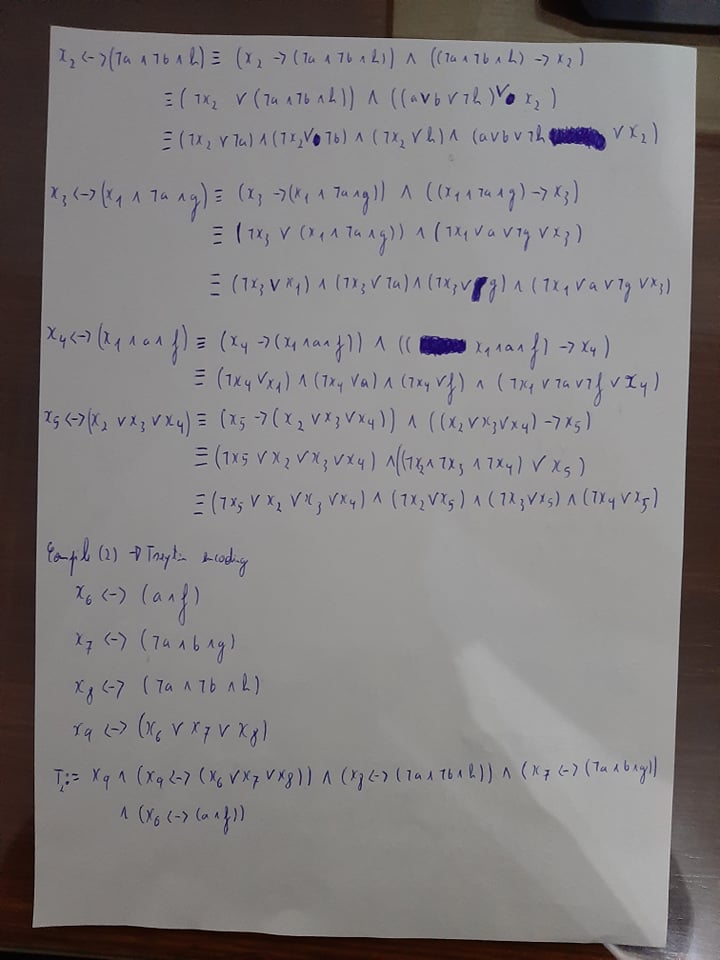 x₂ <-> (¬a ∧ ¬b ∧ h) ≡ (x₂ -> (¬a ∧ ¬b ∧ h)) ∧ ((¬a ∧ ¬b ∧ h) -> x₂)
≡ (¬x₂ ∨ (¬a ∧ ¬b ∧ h)) ∧ ((a ∨ b ∨ ¬h) ∨ x₂)
≡ (¬x₂ ∨ ¬a) ∧ (¬x₂ ∨ ¬b) ∧ (¬x₂ ∨ h) ∧ (a ∨ b ∨ ¬h ∨ x₂)
x₃ <-> (x₁ ∧ ¬a ∧ g) ≡ (x₃ -> (x₁ ∧ ¬a ∧ g)) ∧ ((x₁ ∧ ¬a ∧ g) -> x₃)
≡ (¬x₃ ∨ (x₁ ∧ ¬a ∧ g)) ∧ (¬x₁ ∨ a ∨ ¬g ∨ x₃)
≡ (¬x₃ ∨ x₁) ∧ (¬x₃ ∨ ¬a) ∧ (¬x₃ ∨ g) ∧ (¬x₁ ∨ a ∨ ¬g ∨ x₃)
x₄ <-> (x₁ ∧ a ∧ f) ≡ (x₄ -> (x₁ ∧ a ∧ f)) ∧ ((x₁ ∧ a ∧ f) -> x₄)
≡ (¬x₄ ∨ x₁) ∧ (¬x₄ ∨ a) ∧ (¬x₄ ∨ f) ∧ (¬x₁ ∨ ¬a ∨ ¬f ∨ x₄)
x₅ <-> (x₂ ∨ x₃ ∨ x₄) ≡ (x₅ -> (x₂ ∨ x₃ ∨ x₄)) ∧ ((x₂ ∨ x₃ ∨ x₄) -> x₅)
≡ (¬x₅ ∨ x₂ ∨ x₃ ∨ x₄) ∧ ((¬x₂ ∧ ¬x₃ ∧ ¬x₄) ∨ x₅)
≡ (¬x₅ ∨ x₂ ∨ x₃ ∨ x₄) ∧ (¬x₂ ∨ x₅) ∧ (¬x₃ ∨ x₅) ∧ (¬x₄ ∨ x₅)
(2) -> encoding
x₆ <-> (a ∧ f)
x₇ <-> (¬a ∧ b ∧ g)
x₈ <-> (¬a ∧ ¬b ∧ h)
x₉ <-> (x₆ ∨ x₇ ∨ x₈)
T₂ := x₉ ∧ (x₉ <-> (x₆ ∨ x₇ ∨ x₈)) ∧ (x₈ <-> (¬a ∧ ¬b ∧ h)) ∧ (x₇ <-> (¬a ∧ b ∧ g))
∧ (x₆ <-> (a ∧ f))